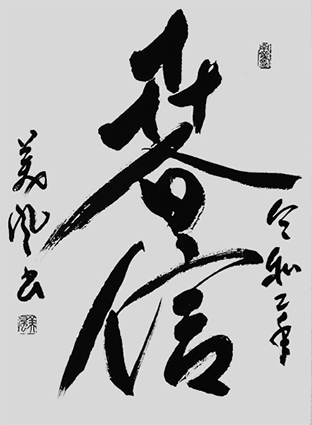 令和二年
春信
美風書